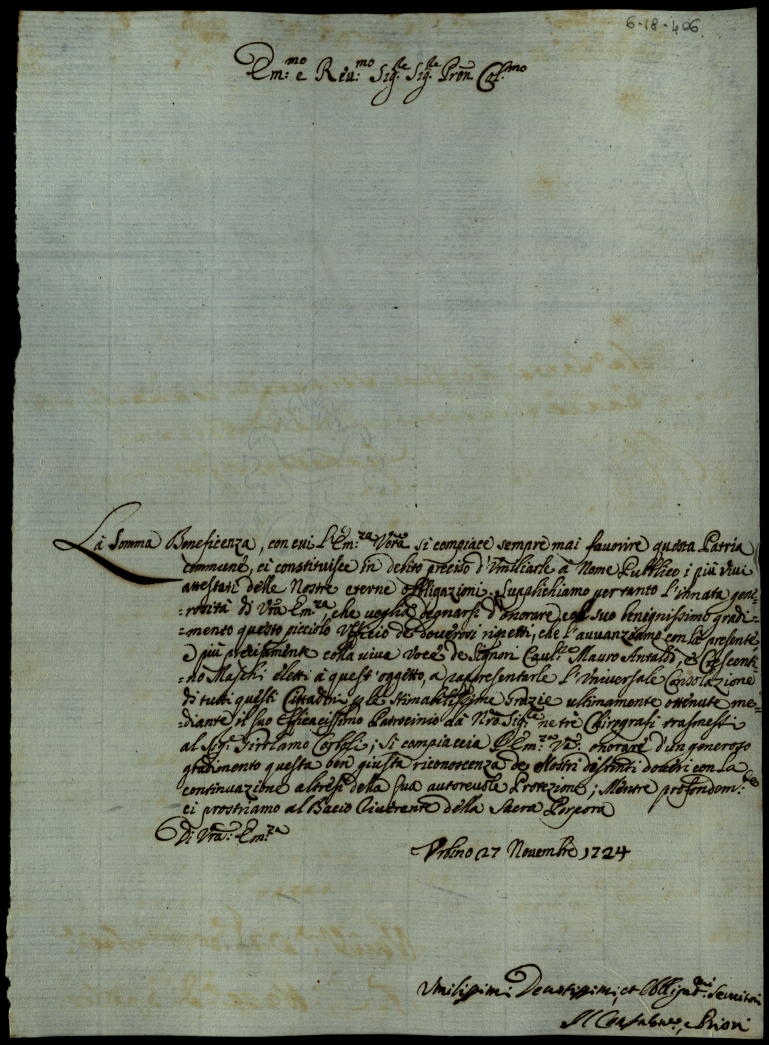 6-18-406.
Em:mo e Reu:mo Sig:re Sig:re Pron Col:mo
La Somma Beneficenza, con cui l'Em:za Vostra si compiace sempre mai favorire questa Patria
commune, ci constituisce in debito preciso d'Umiliarle à Nome Pubblico i più vivi
attestati delle Nostre eterne obbligazioni. Supplichiamo per tanto l'innata gene=
=rosità di Vra Em:za, che voglia degnarsi d'honorare col suo benignissimo gradi=
=mento questo picciolo Uffizio de doverosi rispetti, che l'avvanziamo con la presente,
e più precisamente colla viva voce de Signori Caval:re Mauro Antaldi, e Crescenti=
=no Maschi eletti à quest'oggetto, a rappresentarle l'Universale Consolazione
di tutti questi Cittadini p le stimabilissime grazie ultimamente ottenute me=
=diante il suo Efficacissimo Patrocinio da Nro Sig:re ne trè Chirografi trasmessi
al Sig:r Girolamo; Si compiaccia l'Em:za Va: onorare d'un generoso
gradimento questa ben giusta riconoscenza de Nostri distinti doveri con la
continuazione altresì della Sua autorevole Protezione; Mentre profondam:te
ci prostriamo al Bacio riverente della Sacra Porpora
Di Vra: Em:za
Urbino 27 Novembre 1724
Umilissimi Devotissimi, et Obbligat:mi Servitori
Il Confalon:re, e Priori